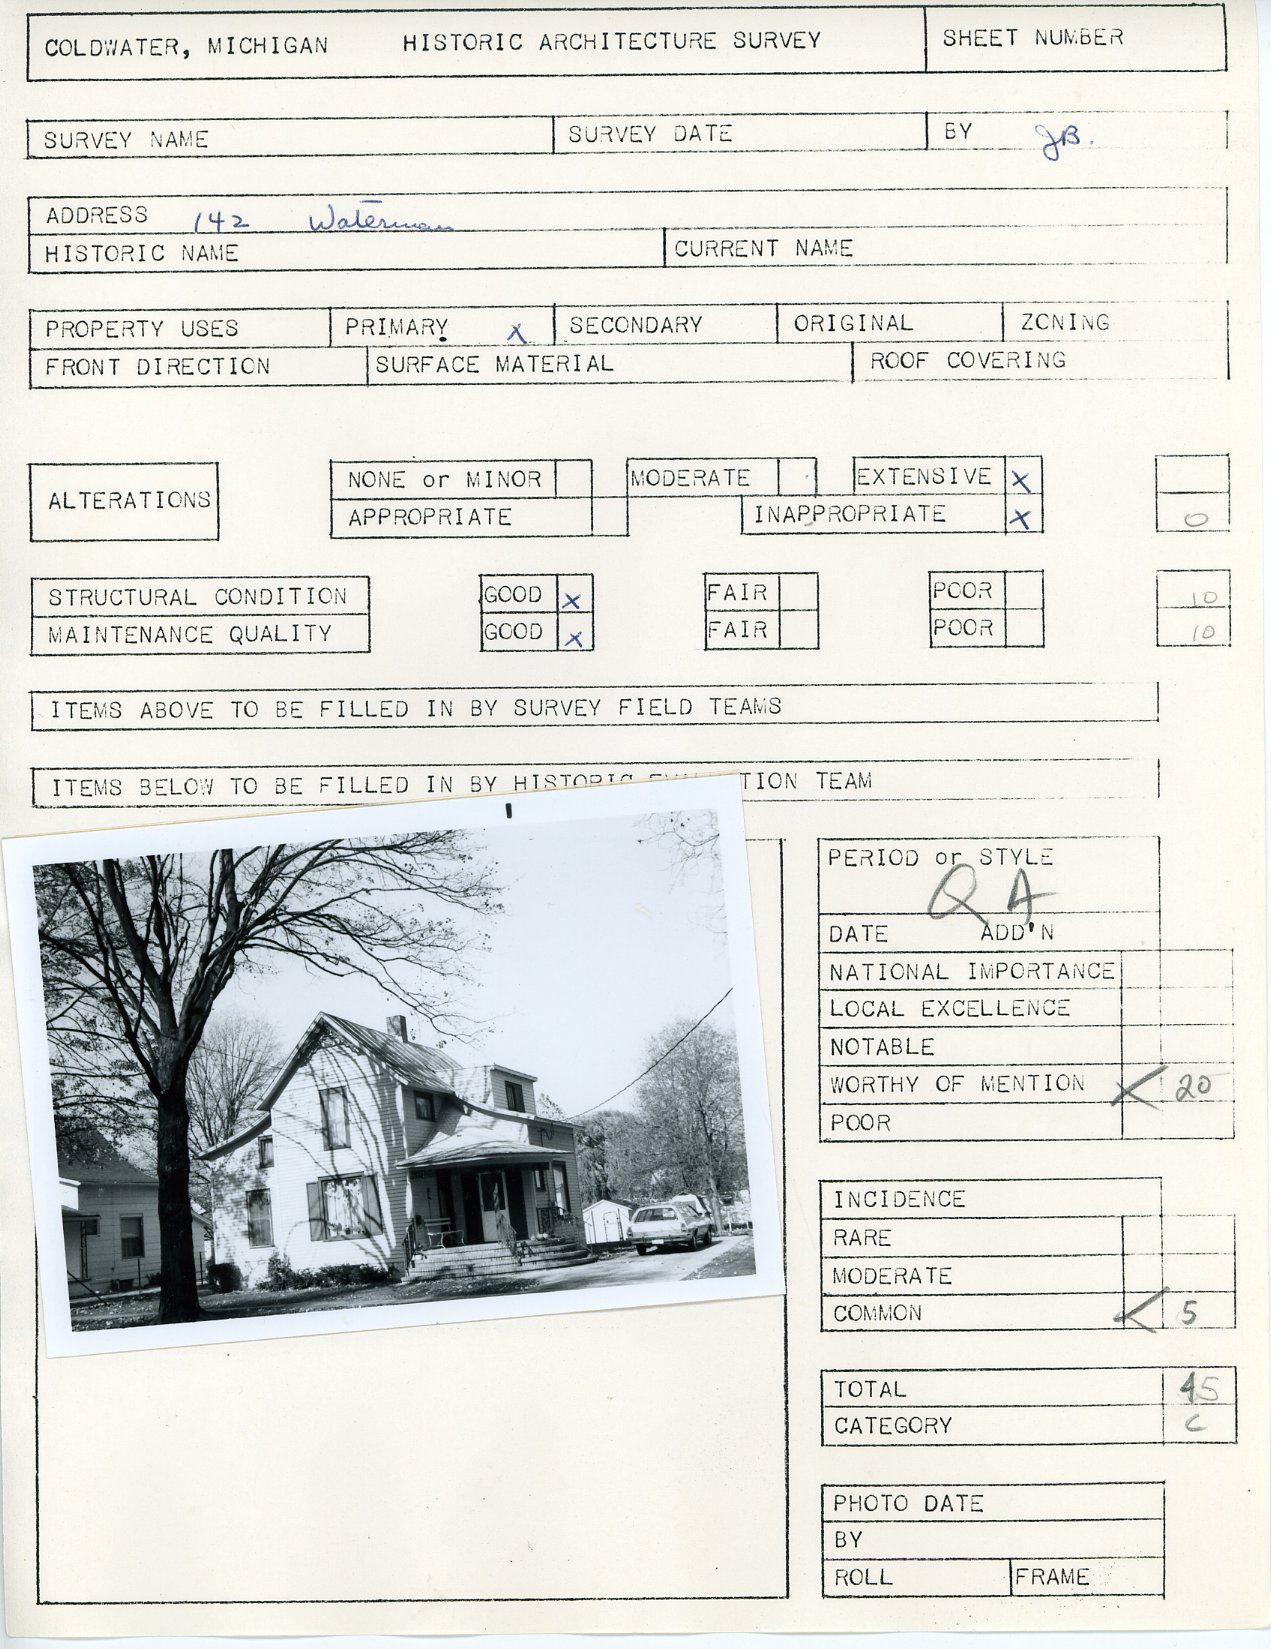 COLDWATER, MICHIGAN HISTORIC ARCHITECTURE SURVEY SHEET NUMBER
SURVEY NAME SURVEY DATE BY JB.
ADDRESS 142 Waterman
HISTORIC NAME CURRENT NAME
PROPERTY USES PRIMARY X SECONDARY ORIGINAL ZONING
FRONT DIRECTION SURFACE MATERIAL ROOF COVERING
ALTERATIONS
NONE or MINOR MODERATE EXTENSIVE X
APPROPRIATE INAPPROPRIATE X 0
STRUCTURAL CONDITION GOOD X FAIR POOR 10
MAINTENANCE QUALITY GOOD X FAIR POOR 10
ITEMS ABOVE TO BE FILLED IN BY SURVEY FIELD TEAMS
ITEMS BELOW TO BE FILLED IN BY HISTORIC TION TEAM
PERIOD or STYLE
QA
DATE ADD'N
NATIONAL IMPORTANCE
LOCAL EXCELLENCE
NOTABLE
WORTHY OF MENTION X 20
POOR
INCIDENCE
RARE
MODERATE
COMMON 5
TOTAL 45
CATEGORY C
PHOTO DATE
BY
ROLL FRAME